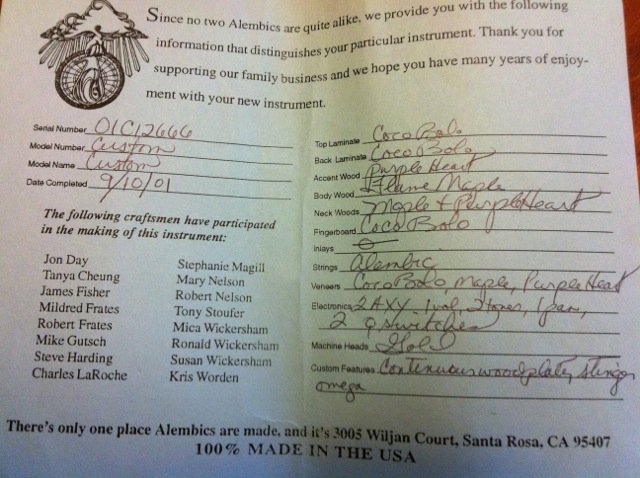 Since no two Alembics are quite alike, we provide you with the following
information that distinguishes your particular instrument. Thank you for
supporting our family business and we hope you have many years of enjoy-
ment with your new instrument.
Serial Number 01C12666
Model Number Custom
Model Name Custom
Date Completed 9/10/01
The following craftsmen have participated
in the making of this instrument:
Jon Day Stephanie Magill
Tanya Cheung Mary Nelson
James Fisher Robert Nelson
Mildred Frates Tony Stoufer
Robert Frates Mica Wickersham
Mike Gutsch Ronald Wickersham
Steve Harding Susan Wickersham
Charles LaRoche Kris Worden
Top Laminate Coco Bolo
Back Laminate Coco Bolo
Accent Wood Purple Heart
Body Wood Flame Maple
Neck Woods Maple + PurpleHeart
Fingerboard Coco Bolo
Inlays
Strings Alembic
Veneers CocoBolo, Maple, Purple Heart
Electronics 2 AXY. 1 vol, 2 tones, 1 pan,
2 Q switches
Machine Heads Gold
Custom Features Continuous wood plates, stinger
omega
There's only one place Alembics are made, and it's 3005 Wiljan Court, Santa Rosa, CA 95407
100% MADE IN THE USA